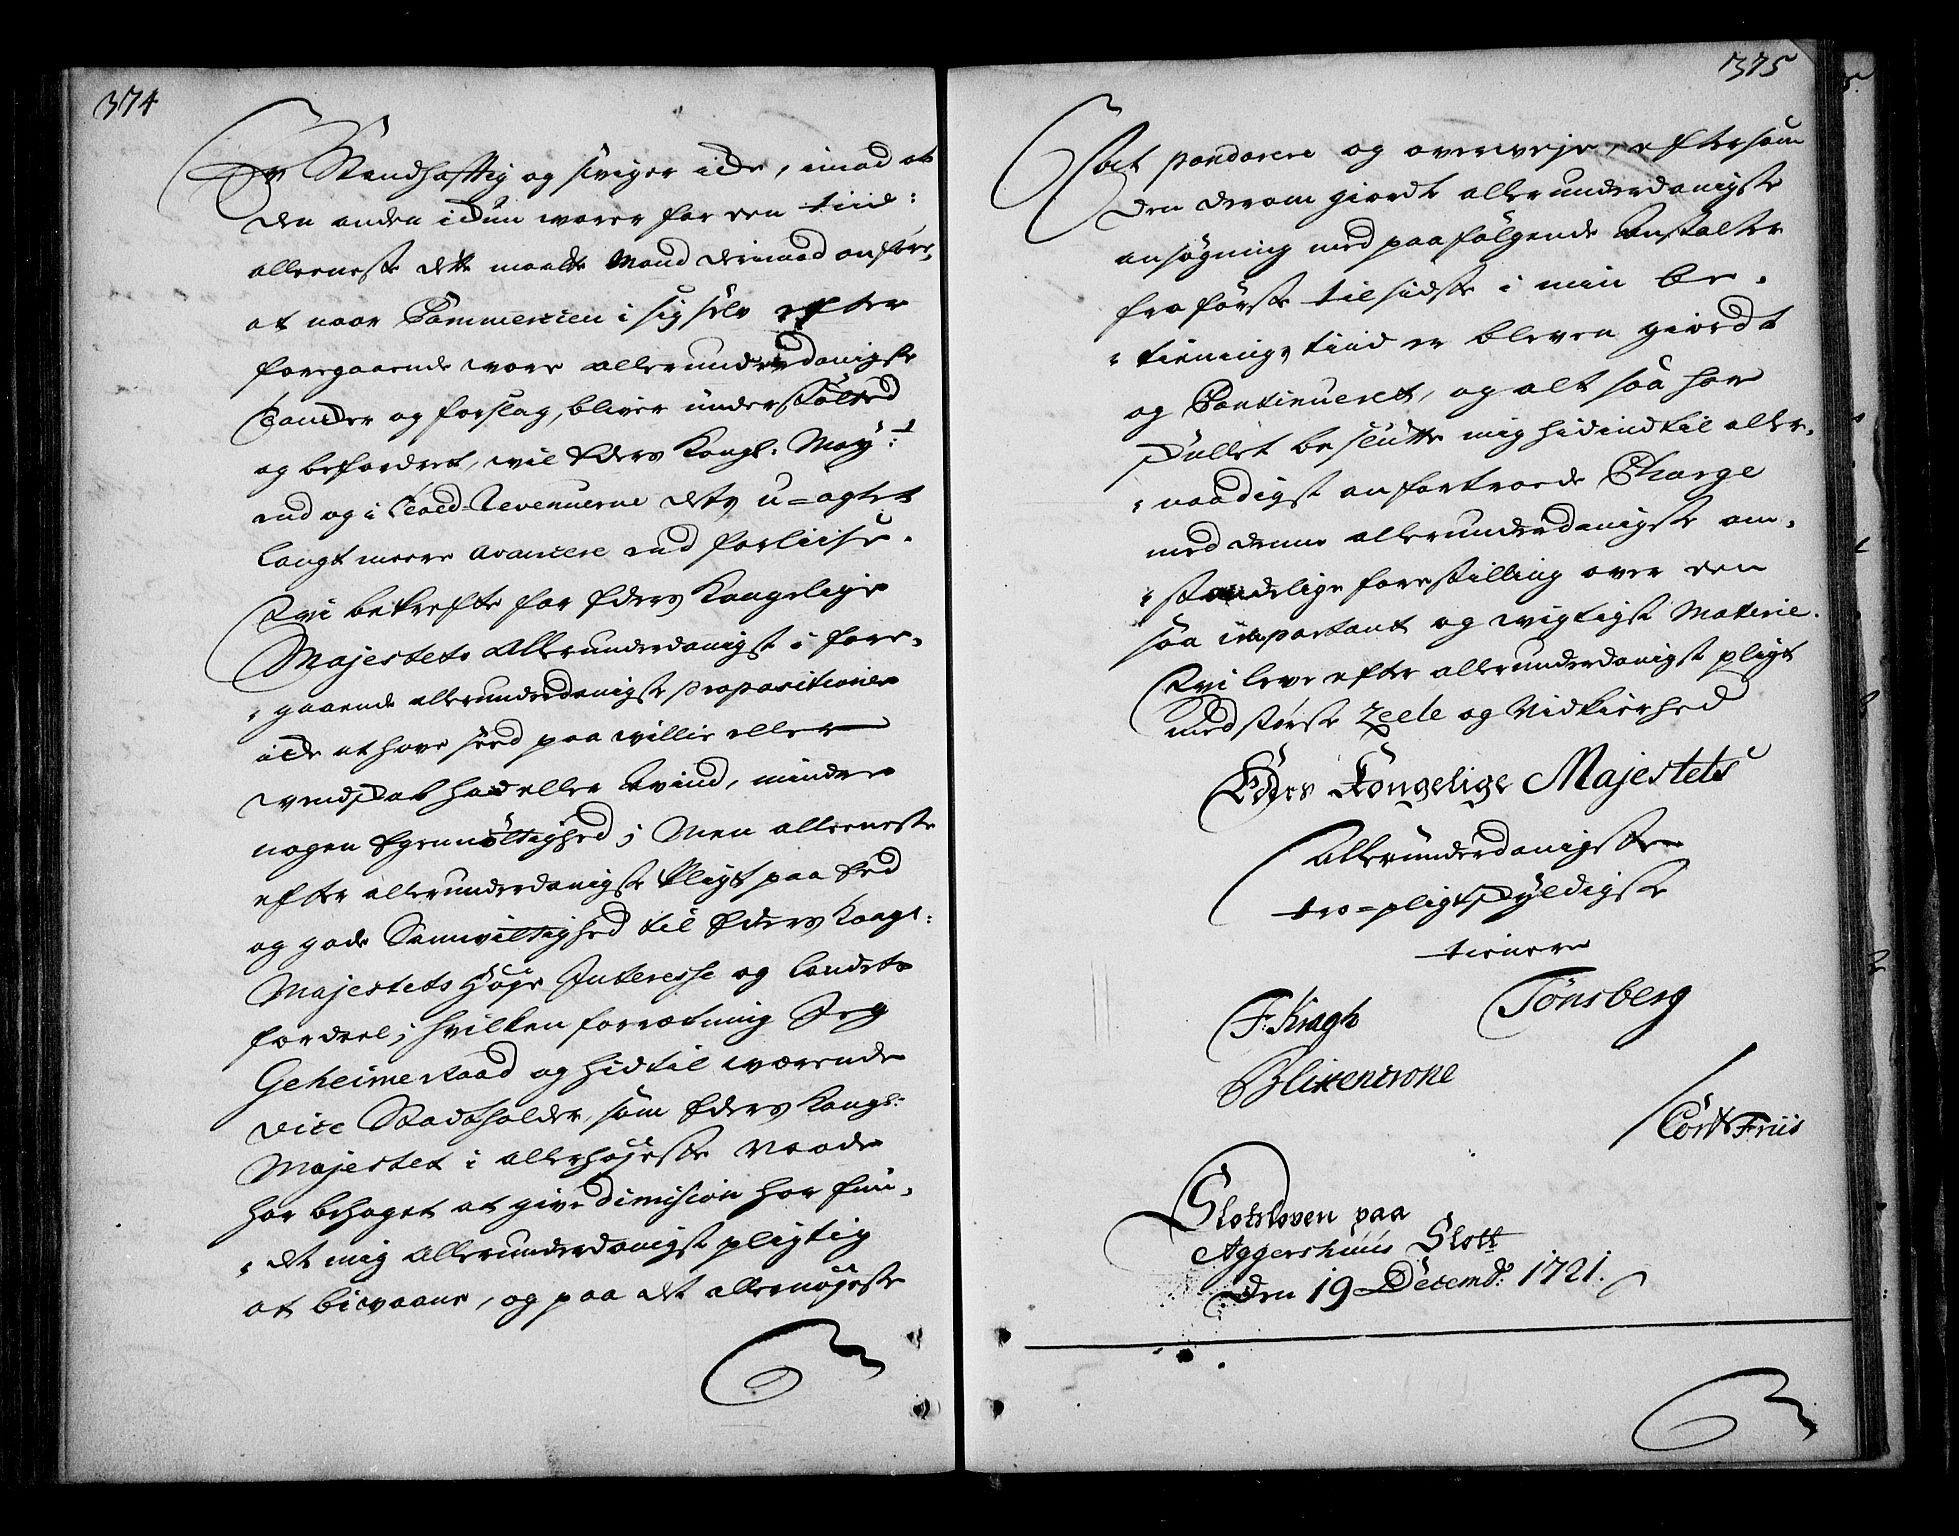 374
Er Standhafftig og sviger icke, imod at
den anden i dum varer for een tiid:
alleeneste dette maatte Mand derimod anføre,
at naar Commercien i sig selv efter
foregaaende vore allerunderdanigste
tancker og forslag, bliver understøtted
og befordret, vil Eders Kongl: May:t
end og i Told-Revenuerne dets u-agtet
langt meere avancere end forliise.
Vi bekrefte for Eders Kongelige
Majestets Allerunderdanigst i fore-
gaaende allerunderdanigste propositioner
icke at have seed paa villie eller
vendskab had eller avind, mindre
nogen Egennøttighed; Men alleeneste
efter allerunderdanigste Pligt paa Eed
og gode Samvittighed til Eders Kongl:
Majestets Høye Interesse og landets
fordeel; hvilken forretning Jeg
Geheimeraad og hidtil værende
Vice Stadtholder, som Eders Kongl:
Majestet i allerhøyeste Naade
har behaget at give dimision har fun-
det mig Allerunderdanigst pligtig
at bivaane, og paa det allernøyeste
375
at ponderere og overveje, eftersom
den derom giordte allerunderdanigste
ansøgning med paafølgende Anstalter
fra første til sidste i min be-
tienings tiid er bleven giordt
og Continueret, og alt saa har
skullet beslutte mig hidindtil aller-
naadigst anfortroede Charge
med denne allerunderdanigste om-
standelige forestilling over een
saa important og vigtigst Materie.
Vi leve efter allerunderdanigst pligt
med største Zeele og Nidkierhed
Eders Kongelige Majestets
Allerunderdanigste
tro-pligtskyldigste
tienere
F: Kragh Tønsberg
Blixencrone
Cort Friis
Slotsloven paa
Aggershuus Slott
den 19 Decemb: 1721.